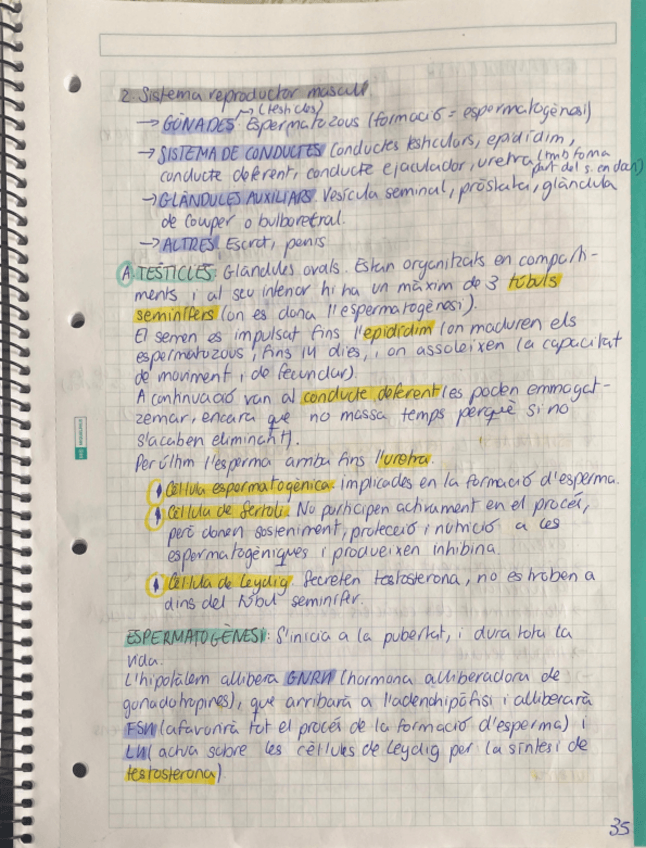 2. Sistema reproductor masculí.
(testicles)
→ GÒNADES: Espermatozous (formació = espermatogènesi)
→ SISTEMA DE CONDUCTES Conductes testiculars, epidídim,
conducte deferent, conducte ejaculador, uretra (tmb forma
part del s. endocrí)
→ GLÀNDULES AUXILIARS. Vesícula seminal, pròstata, glàndula
de Cowper o bulboretral.
→ ALTRES. Escrot, penis
A. TESTICLES: Glàndules ovals. Estan organitzats en comparti-
ments i al seu interior hi ha un màxim de 3 túbuls
seminífers (on es dona l'espermatogènesi).
El semen es impulsat fins l'epidídim (on maduren els
espermatozous, fins 14 dies, i on assoleixen la capacitat
de moviment i de fecundar).
A continuació van al conducte deferent (es poden emmagat-
zemar, encara que no massa temps perquè si no
s'acaben eliminant).
Per últim l'esperma arriba fins l'uretra.
Cèl·lula espermatogènica. implicades en la formació d'esperma.
Cèl·lula de Sertoli. No participen activament en el procés,
però donen sosteniment, protecció i nutrició a les
espermatogèniques i produeixen inhibina.
Cèl·lula de Leydig. Secreten testosterona, no es troben a
dins del túbul seminífer.
ESPERMATOGÈNESI: S'inicia a la pubertat, i dura tota la
vida.
L'hipotàlem allibera GNRH (hormona alliberadora de
gonadotropines), que arribarà a l'adenohipòfisi i alliberarà
FSH (afavorirà tot el procés de la formació d'esperma) i
LH (actua sobre les cèl·lules de Leydig per la síntesi de
testosterona).
35